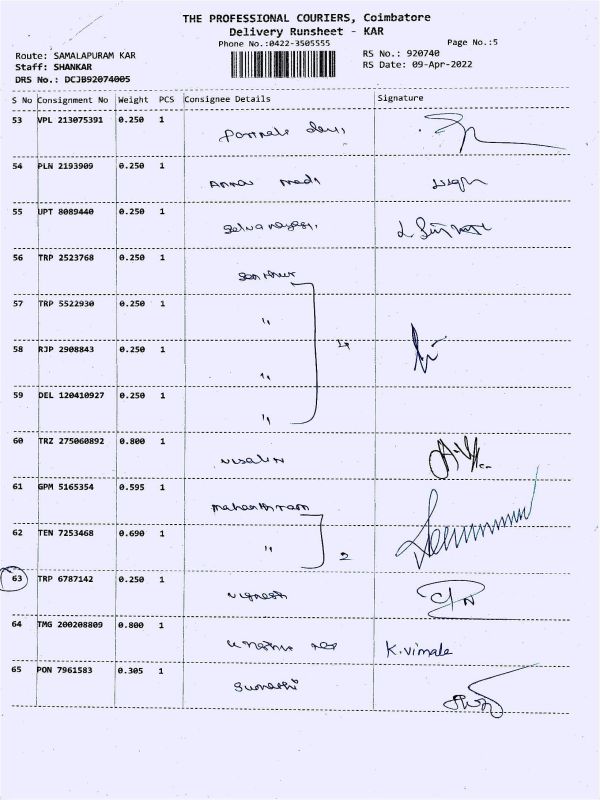 THE PROFESSIONAL COURIERS, Coimbatore
Delivery Runsheet - KAR
Phone No.:0422-3505555
Page No.:5
Route: SAMALAPURAM KAR
RS No.: 920740
Staff: SHANKAR
RS Date: 09-Apr-2022
DRS No.: DCJB92074005
S No Consignment No Weight PCS Consignee Details Signature
53 VPL 213075391 0.250 1
54 PLN 2193909 0.250 1
55 UPT 8089440 0.250 1
56 TRP 2523768 0.250 1
57 TRP 5522930 0.250 1
"
58 RJP 2908843 0.250 1
"
59 DEL 120410927 0.250 1
"
60 TRZ 275060892 0.800 1
61 GPM 5165354 0.595 1
62 TEN 7253468 0.690 1
" 2
63 TRP 6787142 0.250 1
Vignesh
64 TMG 200208809 0.800 1
K.Vimala
65 PON 7961583 0.305 1
Sumathi